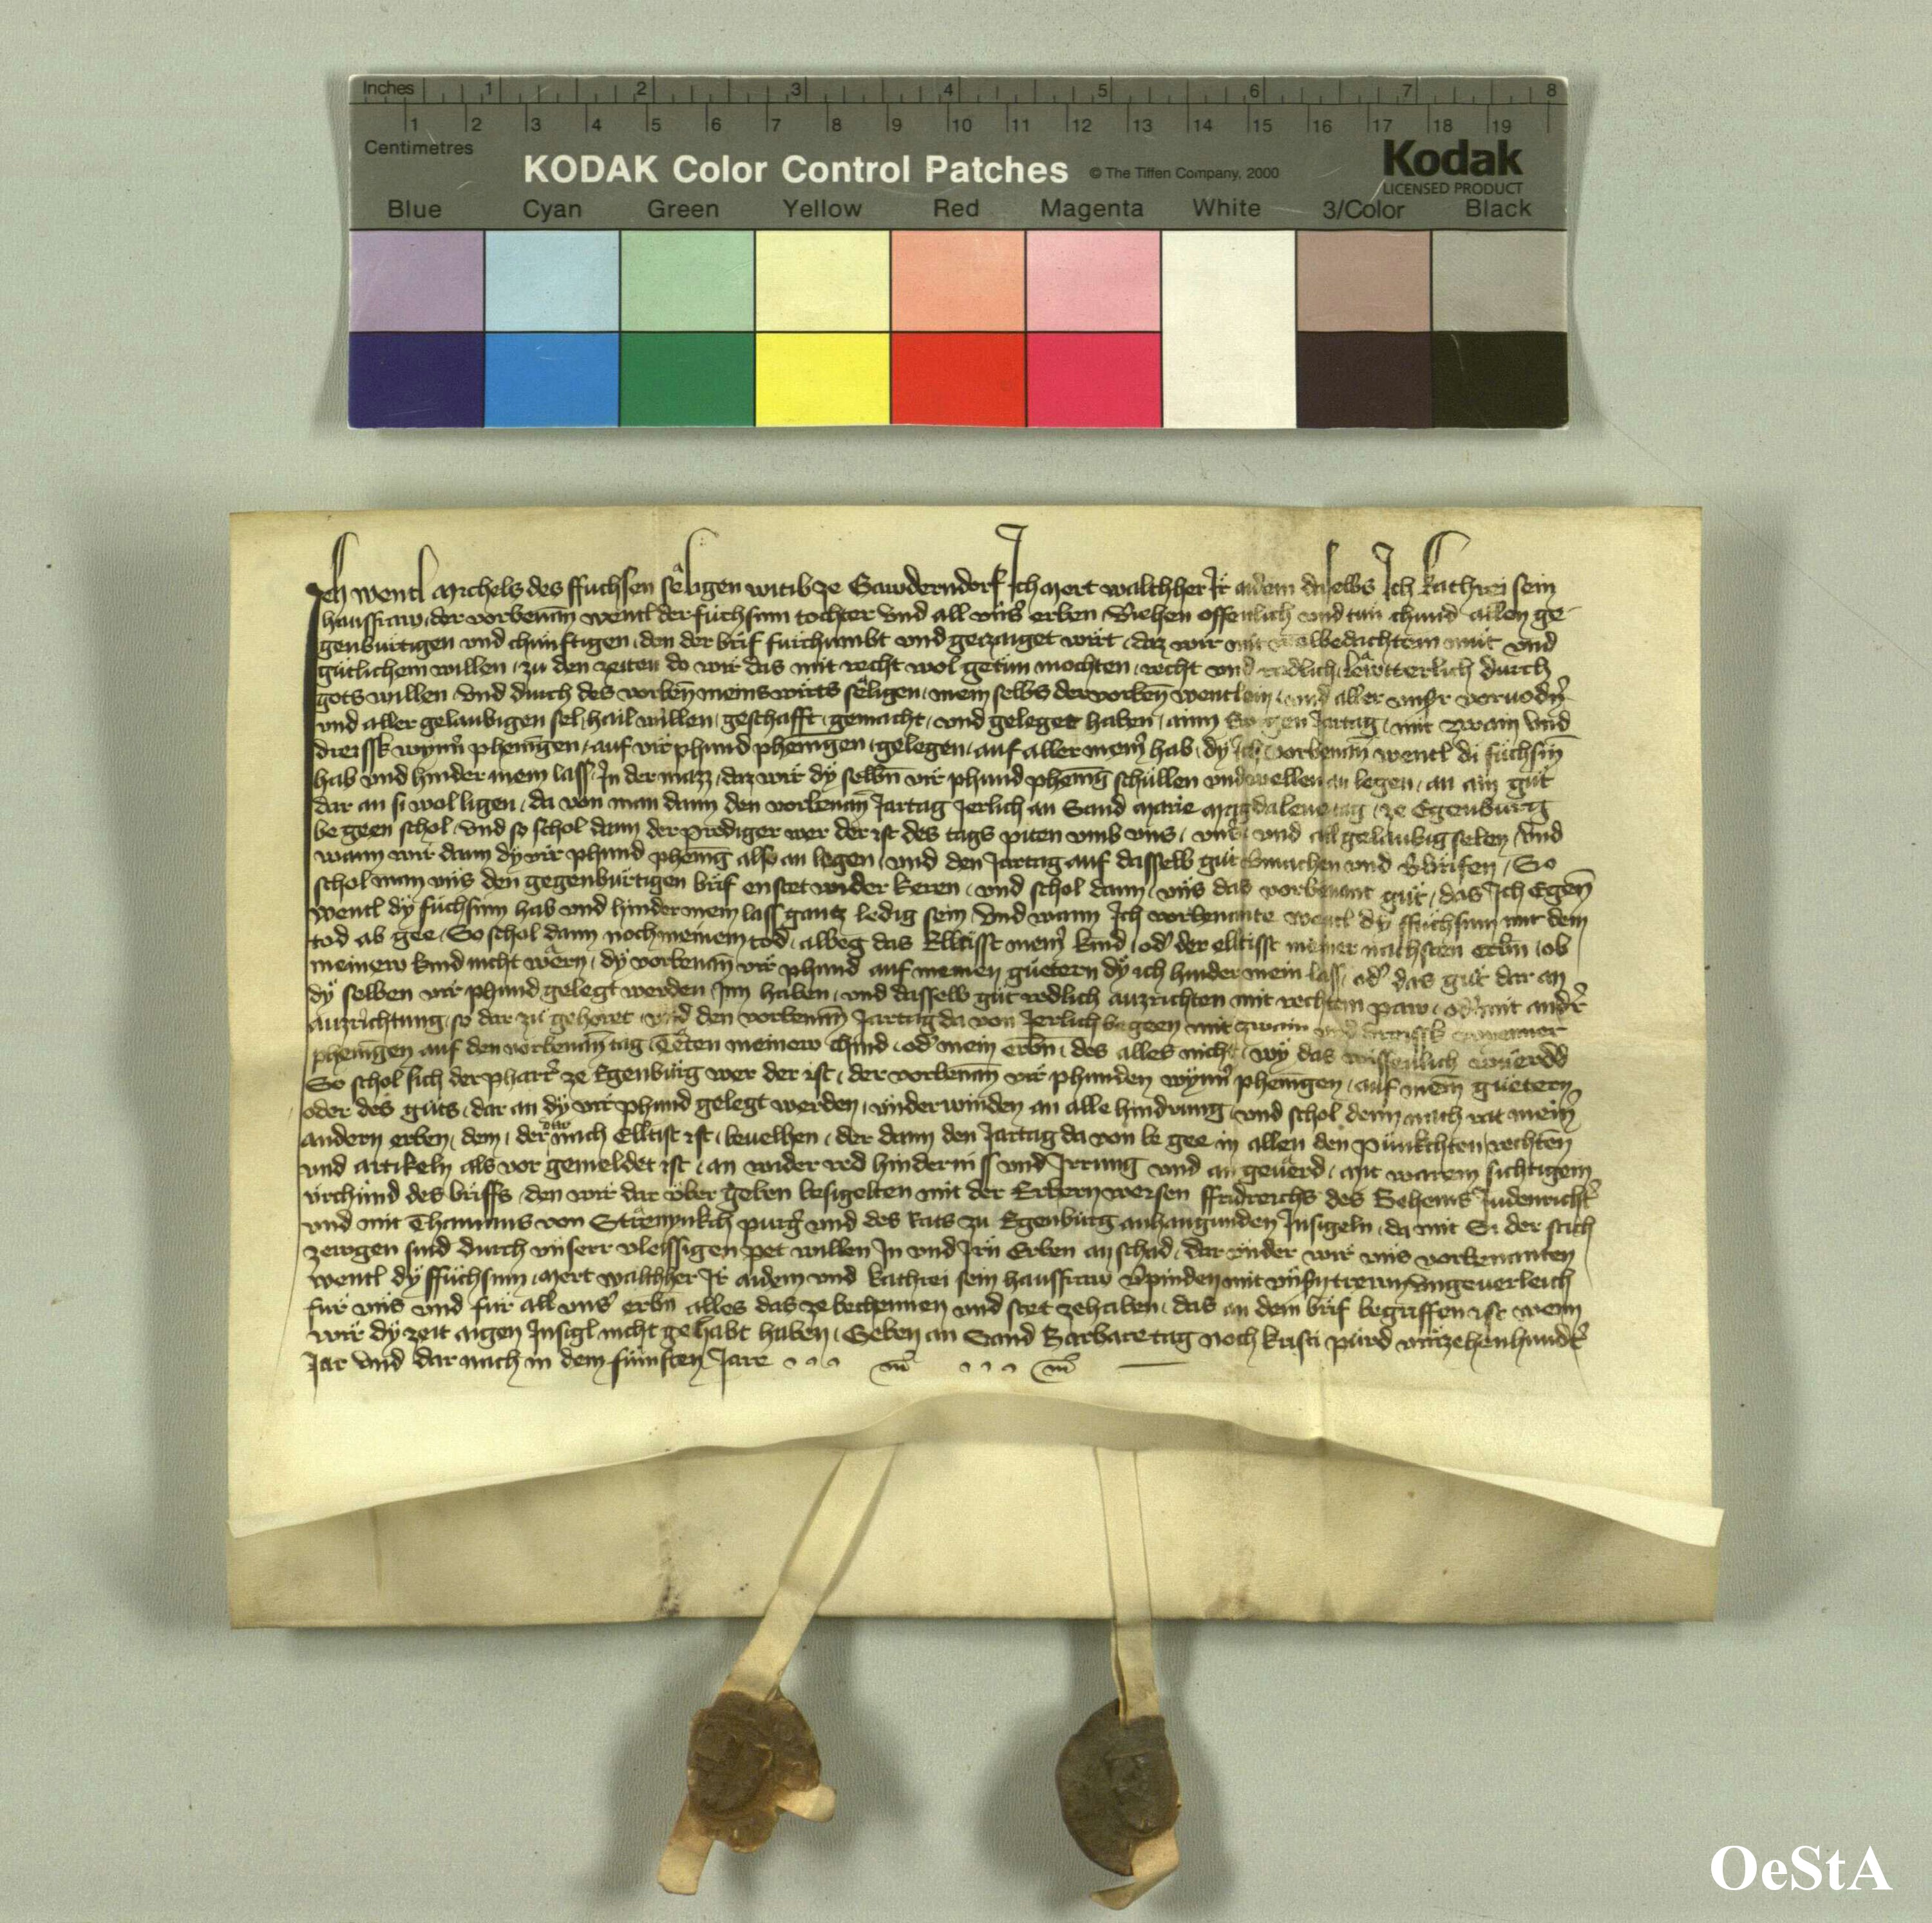 Inches 1 2 3 4 5 6 7 8
1 2 3 4 5 6 7 8 9 10 11 12 13 14 15 16 17 18 19
Centimetres
KODAK Color Control Patches © The Tiffen Company, 2000 Kodak
LICENSED PRODUCT
Blue Cyan Green Yellow Red Magenta White 3/Color Black
Ich Wentl Michels des ffuchsen seligen witib ze Gawderndorf Ich Mert Walthher Ir aidem daselbs Ich Kathrei sein
hausfraw der vorbenan̄ wentl der füchsinn tochter vnd all vns̉ erben Veriehen offenlich vnd tun chund allen ge
genburtigen vnd chunftigen den der brif furchumbt vnd geczaiget wirt daz wir mit wolbedachtem mut vnd
gutlichem willen zu den zeiten do wir das mit recht wol getun mochten recht vnd redlich lautterlich durch
gots willen vnd durch des vorben̄ meins wirts seligen mein selbs der vorben̄ wentlein vnd aller vnsr voruodn̉
vnd aller gelaubigen sel hail willen geschafft gemacht vnd geleget haben ainn ewigen Jartag mit zwain vnd
dreissk wynn̉ phenīgen auf vir phund phenīgen gelegen auf aller mein̉ hab dy ich vorbenan̄ wentl di füchsin̄
hab vnd hinder mein lass In der mazz daz wir dy selbn̄ vir phund phenīg schullen vnd wellen an legen an ain gut
dar an si wol ligen da von man dann den vorbenan̄ Jartag Jerlich an Sand Marie Magdalene tag ze Egenburg
be geen schol vnd so schol dann der prediger wer der ist des tags piten vmb vns vnd all gelaubig selen vnd
wann wir dann dy vir phund phenīg also an legen vnd den Jartag auf dasselb gut v̉machen vnd v̉brifen So
schol man vns den gegenburtigen brif enstet wider keren vnd schol dann vns das vorbenant gut das Ich Egen̄
wentl dy füchsinn hab vnd hinder mein lass gantz ledig sein vnd wann Ich vorbenante wentl dy ffüchsinn mit dem
tod ab gee So schol dann noch meinem tod albeg das Elltisst mein̉ kind od̉ der elltisst meiner nachsten erbn ob
meinew kind nicht wern dy vorbenan̄ vir phund auf meinen guetern dy ich hinder mein lass od̉ das gut dar an
dy selben vir phund gelegt werden Inn haben vnd dasselb gut redlich auzrichten mit rechtem paw od̉ mit andr̉
auzrichtung so dar zu gehoret vnd den vorbenan̄ Jartag da von Jerlich begeen mit zwain vnd dreissk wienner
phenīgen auf den vorbenan̄ tag Teten meinew chind od̉ mein erbn̄ des alles nicht wy das wissenlich wuerdd
So schol sich der pharr̉ ze Egenburg wer der ist der vorbenan̄ vir phunden wynn̉ phenīgen auf mein̄ guetern
oder des guts dar an dy vir phund gelegt werden vnderwinden an alle hindrung vnd schol denn nach rat mein̉
andern erben dem der dar nach Elltist ist beuelhen der dann den Jartag da von be gee in allen den punkchten rechten
vnd artikeln als vor gemeldet ist an wider red hinderniss vnd Irrung vnd an geuerd Mit warem sichtigem
vrchund des briffs den wir dar vber geben besigelten mit der Erbern weisen ffridreichs des Behems Judenricht̉
vnd mit Thamans von Stremynkch purg̉ vnd des Rats zu Egenburg anhangunden Insigeln da mit Si der sach
zewgen sind durch vnserr vleissigen pet willen In vnd Irn Erben an schad dar vnder wir vns vorbenanten
wentl dy ffüchsinn Mert walthher Ir aidem vnd kathrei sein hausfraw v̉pinden mit vnsn trewn vngeuerleich
fur vns vnd fur all vns̉ erbn̄ alles das ze bechennen vnd stet ze haben das an dem brif begriffen ist wenn
wir dy zeit aigen Insigl nicht gehabt haben Geben an Sand Barbare tag noch kristi purd virzehenhundt̉
Jar vnd dar nach in dem fünften Jare
OeStA